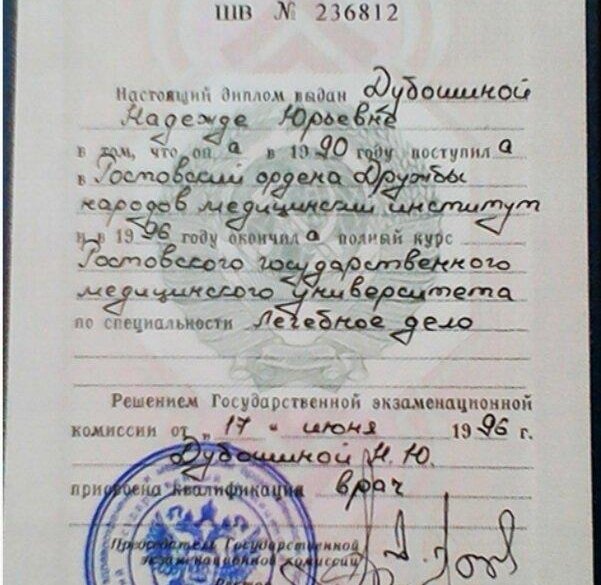 ШВ № 236812
Настоящий диплом выдан Дубошиной
Надежде Юрьевне
в том, что он а в 1990 году поступил а
в Ростовский ордена Дружбы
народов медицинский институт
и в 1996 году окончил а полный курс
Ростовского государственного
медицинского университета
по специальности Лечебное дело
Решением Государственной экзаменационной
комиссии от „ 17 “ июня 1996 г.
Дубошиной Н.Ю.
присвоена квалификация врач
Председатель Государственной
экзаменационной комиссии
Ростов